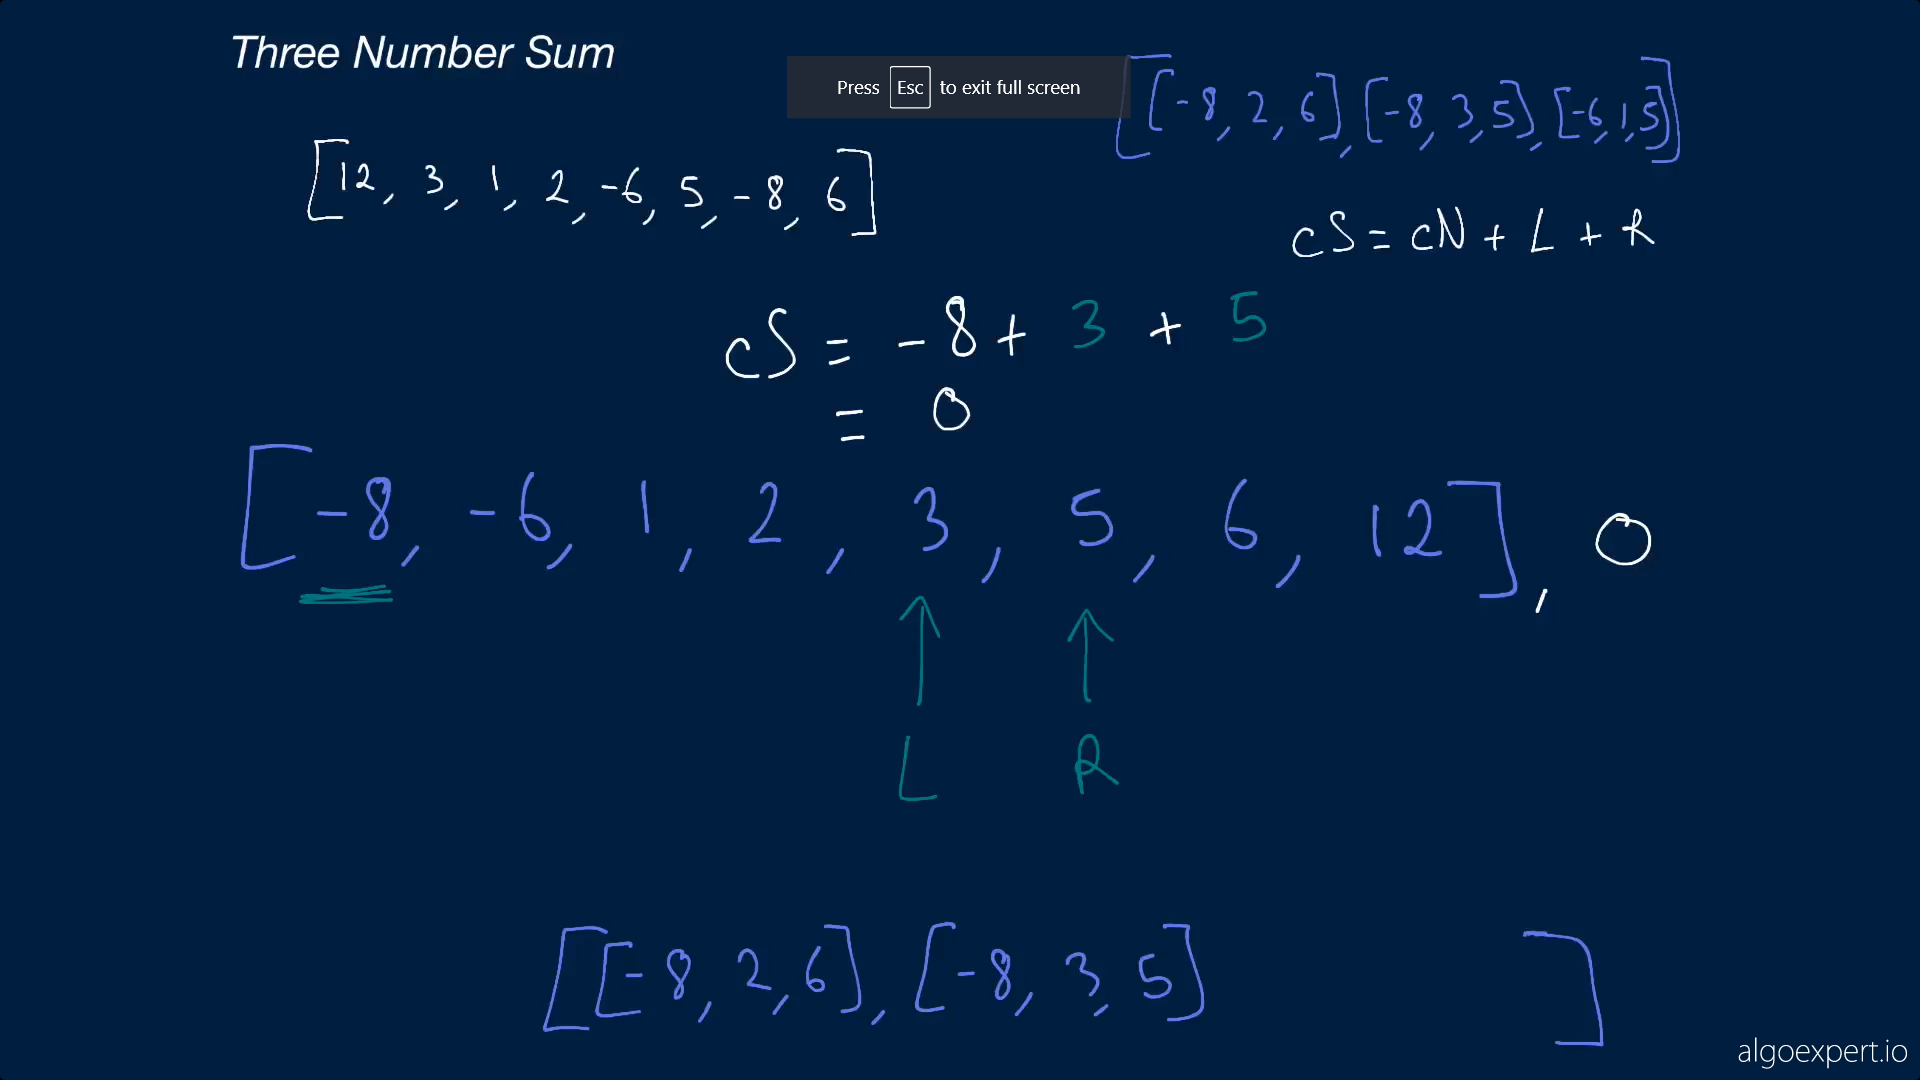 Three Number Sum
Press Esc to exit full screen
[[-8, 2, 6], [-8, 3, 5], [-6, 1, 5]]
[12, 3, 1, 2, -6, 5, -8, 6]
cS = cN + L + R
cS = -8 + 3 + 5
= 0
[-8, -6, 1, 2, 3, 5, 6, 12], 0
L R
[[-8, 2, 6], [-8, 3, 5] ]
algoexpert.io